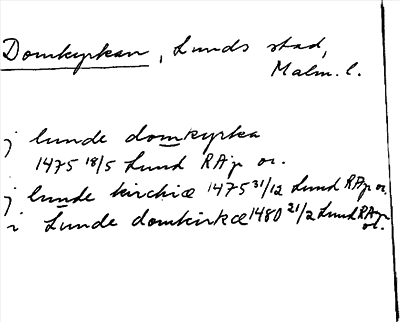 Domkyrkan, Lunds stad,
Malm. l.
j lunde domkyrka
1475 18/5 Lund RAp or.
j lunde kirchiæ 1475 31/12 Lund RAp or.
i Lunde domkirkæ 1480 21/2 Lund RAp
or.